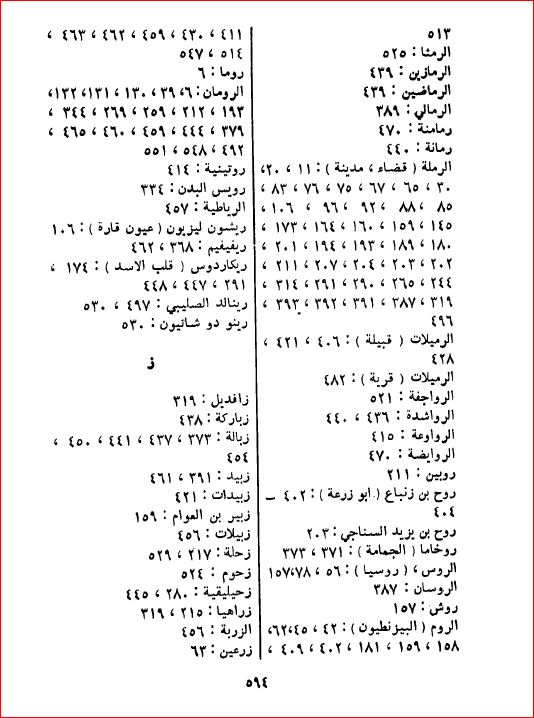 ٥١٣
الرمثا : ٥٢٥
الرمازين : ٤٣٩
الرماضين : ٤٣٩
الرمالي : ٣٨٩
رمامنة : ٤٧٠
رمانة : ٤٤٠
الرملة ( قضاء ، مدينة ) : ١١ ، ٢٠،
٣٠ ، ٦٥ ، ٦٧ ، ٧٥ ، ٧٦ ، ٨٣ ،
٨٥ ، ٨٨، ٩٢ ، ٩٦ ، ١٠٦ ،
١٤٥ ، ١٥٩ ، ١٦٠ ، ١٦٤ ، ١٧٣ ،
١٨٠ ، ١٨٩ ، ١٩٣ ، ١٩٤ ، ٢٠١ ،
٢٠٢ ، ٢٠٣ ، ٢٠٤ ، ٢٠٧ ، ٢١١ ،
٢٤٤ ، ٢٦٥ ، ٢٩٠ ، ٢٩١ ، ٣١٤ ،
٣١٩ ، ٣٨٧ ، ٣٩١ ، ٣٩٢ ، ٣٩٣ ،
٤٩٦
الرميلات ( قبيلة ) : ٤٠٦ ، ٤٢١ ،
٤٢٨
الرميلات ( قرية ) : ٤٨٢
الرواجفة : ٥٢١
الرواشدة : ٤٣٦ ، ٤٤٠
الرواوعة : ٤١٥
الروايضة : ٤٧٠
روبين : ٢١١
روح بن زنباع ( ابو زرعة ) : ٤٠٢ –
٤٠٤
روح بن يزيد السناجي : ٢٠٣
روخاما ( الجمامة ) : ٣٧١ ، ٣٧٣
الروس ، ( روسيا ) : ٥٦ ، ٧٨،١٥٧
الروسان : ٣٨٧
روش : ١٥٧
الروم ( البيزنطيون ) : ٤٢ ، ٤٥،٦٢،
١٥٨ ، ١٥٩ ، ١٨١ ، ٤٠٢ ، ٤٠٩ ،
٤١١ ، ٤٣٠ ، ٤٥٩ ، ٤٦٢ ، ٤٦٣ ،
٥١٤ ، ٥٤٧
روما : ٦
الرومان : ٦ ، ٣٩ ، ١٣٠ ، ١٣١، ١٣٢،
١٩٣ ، ٢١٢ ، ٢٥٩ ، ٢٦٩ ، ٣٤٤ ،
٣٧٩ ، ٤٤٤ ، ٤٥٩ ، ٤٦٠ ، ٤٦٥ ،
٤٩٢ ، ٥٤٨ ، ٥٥١
روتينية : ٤١٤
رويس البدن : ٣٣٤
الرياطية : ٤٥٧
ريشون ليزيون ( عيون قارة ) : ١٠٦
ريفيفيم : ٣٦٨ ، ٤٦٢
ريكاردوس ( قلب الاسد ) : ١٧٤ ،
٢٩١ ، ٤٤٧ ، ٤٤٨
رينالد الصليبي : ٤٩٧ ، ٥٣٠
رينو دو شاتيون : ٥٣٠
ز
زافديل : ٣١٩
زباركة : ٤٣٨
زبالة : ٣٧٣ ، ٤٣٧ ، ٤٤١ ، ٤٥٠ ،
٤٥٤
زبيد : ٣٩١ ، ٤٦١
زبيدات : ٤٢١
زبير بن العوام : ١٥٩
زبيلات : ٤٥٦
زحلة : ٢١٧ ، ٥٢٩
زحوم : ٥٢٤
زحيليقية : ٢٨٠ ، ٤٤٥
زراهيا : ٢١٥ ، ٣١٩
الزربة : ٤٥٦
زرعين : ٦٣
٥٩٤